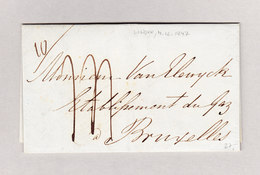 10/
London, 4.12.1847
Monsieur Van Elewyck
Etablissement du Gaz
à Bruxelles